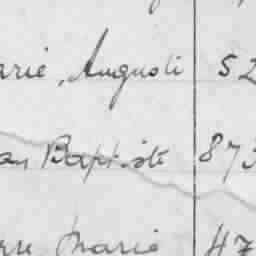 arie, Augusti 52
an Baptiste 873
rre Marie 47